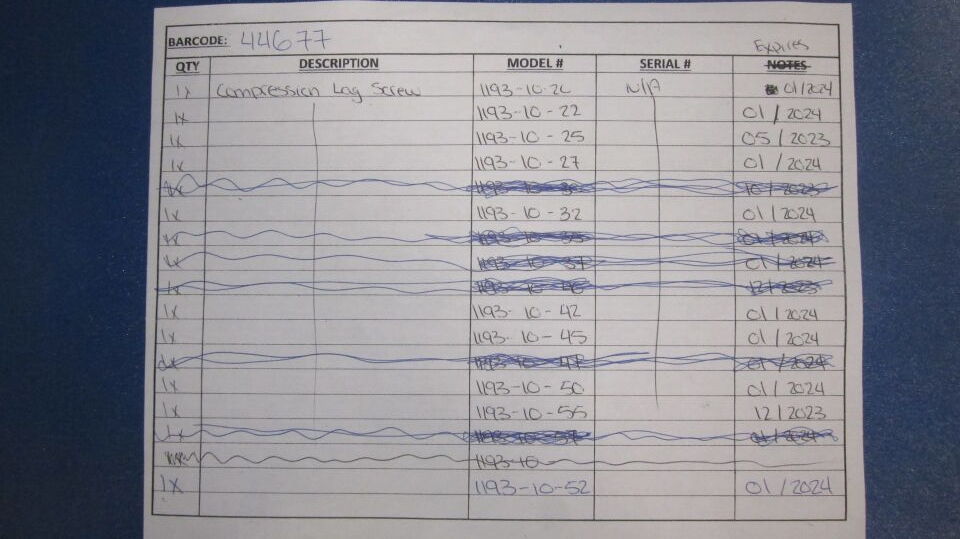 BARCODE: 44677
Expires
QTY DESCRIPTION MODEL # SERIAL # NOTES
1x Compression Lag Screw 1193-10-20 N/A 01/2024
1x 1193-10-22 01/2024
1x 1193-10-25 05/2023
1x 1193-10-27 01/2024
1x 1193-10-30 10/2023
1x 1193-10-32 01/2024
1x 1193-10-35 01/2024
1x 1193-10-37 01/2024
1x 1193-10-40 12/2023
1x 1193-10-42 01/2024
1x 1193-10-45 01/2024
1193-10-47 01/2024
1x 1193-10-50 01/2024
1x 1193-10-55 12/2023
1x 1193-10-57 01/2024
1193-10
1X 1193-10-52 01/2024